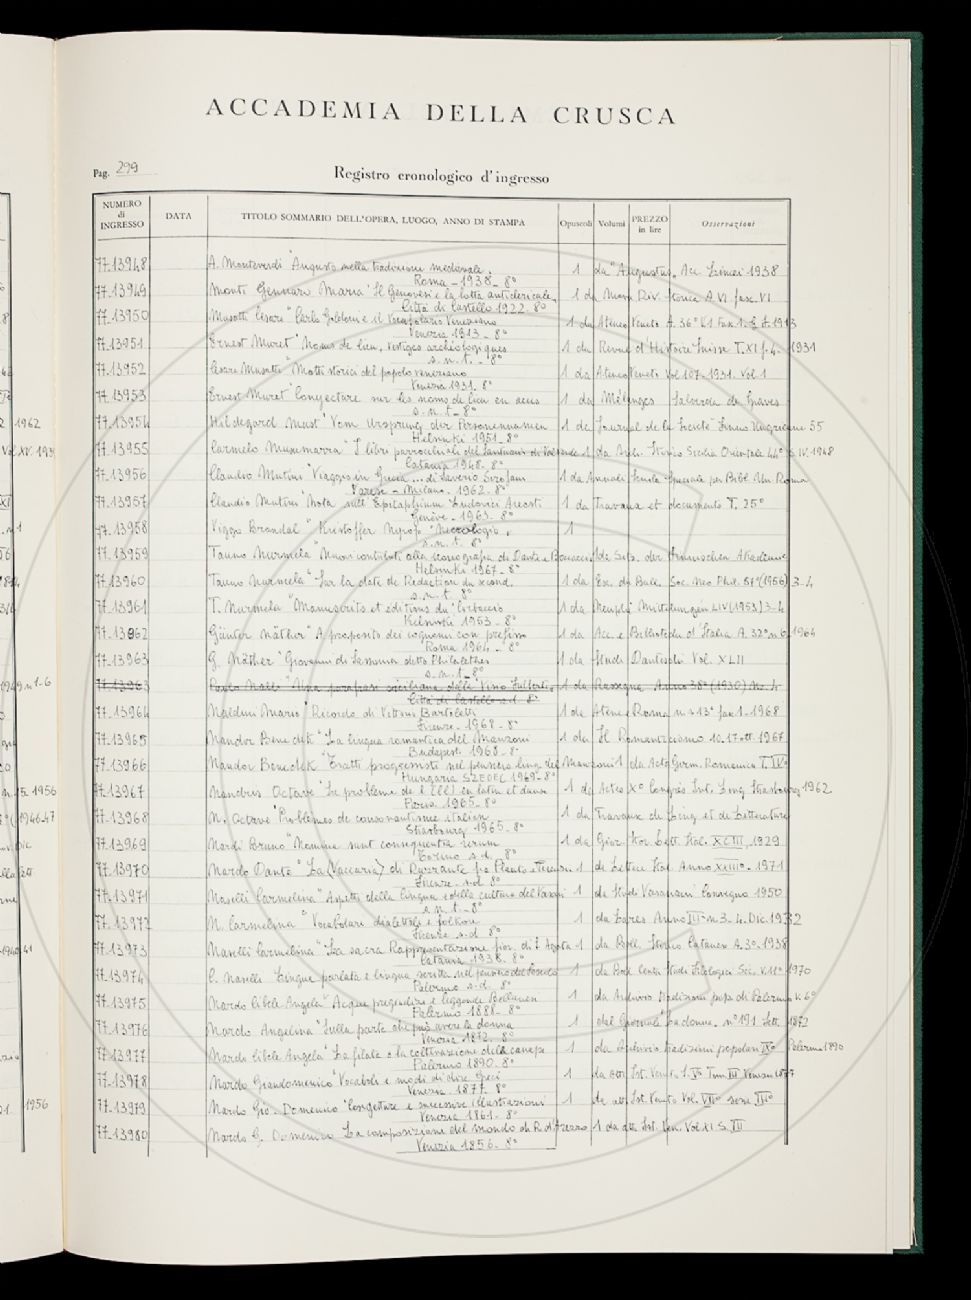 ACCADEMIA DELLA CRUSCA
Pag. 299
Registro cronologico d'ingresso
NUMERO di INGRESSO DATA TITOLO SOMMARIO DELL'OPERA, LUOGO, ANNO DI STAMPA Opuscoli Volumi PREZZO in lire Osservazioni
77.13948 A. Monteverdi "Augusto nella tradizione medievale. 1 da "Augustus, Acc. Lincei 1938
Roma - 1938 - 8°
77.13949 Monti Gennaro Maria "Il Genovesi e la lotta anticlericale 1 da Riv. storica A. VI fasc. VI
Città di Castello 1922 - 8°
77.13950 Musatti Cesare "Carlo Goldoni e il Vocabolario Veneziano 1 da Ateneo Veneto A. 36° V.1 Fasc. 1. 1913
Venezia 1913 - 8°
77.13951 Ernest Muret "Noms de lieu, vestiges archéologiques 1 da Revue d'Histoire Suisse T. XI f. 4. 1931
s.n.t. - 8°
77.13952 Cesare Musatti "Motti storici del popolo veneziano 1 da Ateneo Veneto Vol 107 - 1931. Vol 1
Venezia 1931. 8°
77.13953 Ernest Muret "Conjecture sur les noms de lieu en 1 da Mélanges Salverda de Graves
s.n.t - 8°
77.13954 Hildegard Must "Vom Ursprung der Personennamen 1 de Journal de la Société Finno Ougrienne 55
Helsinki 1951 - 8°
77.13955 Carmelo Musumarra "I libri parrocchiali del 1 da Arch. Storico Sicilia Orientale 44° S. IV. 1948
Catania 1948 - 8°
77.13956 Claudio Mutini "Viaggio in Grecia ... di Saverio Scrofani 1 da Annali Scuola Speciale per Bibl. Un. Roma
Varese - Milano. 1962 - 8°
77.13957 Claudio Mutini "Nota sull'Epitaphium Ludovici Areosti 1 da Travaux et documents T. 25°
Genève - 1963 - 8°
77.13958 Viggo Brøndal "Kristoffer Nyrop "Necrologio, 1
s.n.t. 8°
77.13959 Tauno Nurmela "Nuovi contributi alla iconografia di Dante e Boccaccio 1 da Sitz. der Finnischen Akademie
Helsinki 1967 - 8°
77.13960 Tauno Nurmela "Sur la date de Redaction du second. 1 da Ex. du Bulle. Soc. Neo Phil. 57° (1956) 3-4
s.n.t. 8°
77.13961 T. Nurmela "Manuscrits et éditions du Corbaccio 1 da Neuph. Mitteilungen LIV (1953) 3-4
Helsinki 1953 - 8°
77.13962 Günter Näther "A proposito dei cognomi con prefisso 1 da Acc. e Biblioteche d'Italia A. 32° n 6. 1964
Roma 1964 - 8°
77.13963 G. Näther "Giovanni di Sassonia detto Philalethes 1 da Studi Danteschi Vol. XLII
s.n.t - 8°
77.13963 Paolo Nalli "Una parafrasi siciliana della "Vino 1 da Rassegna Anno 38° (1930) N. 4
Città di Castello s.d. 8°
77.13964 Naldini Mario "Ricordo di Vittorio Bartoletti 1 da Atene e Roma n.s. 13° fasc 1 - 1968
Firenze - 1968 - 8°
77.13965 Nandor Benedek "La lingua romantica del Manzoni 1 da Il Romanticismo 10.17 ott. 1967
Budapest 1968 - 8°
77.13966 Nandor Benedek "Tratti progressisti nel pensiero ling. del Manzoni 1 da Acta Germ. Romanica T. IV°
Hungaria SZEGED 1969 - 8°
77.13967 Nandris Octave "Le problème de l (ll) en latin et dans 1 da Actes X° Congrès Int. Ling Strasbourg 1962
Paris 1965 - 8°
77.13968 N. Octave "Problèmes de consonantisme italien 1 da Travaux de Ling. et de Litterature
Strasbourg 1965 - 8°
77.13969 Nardi Bruno "Nomina sunt consequentia rerum 1 da Gior. Stor. Lett. Ital. XCIII, 1929
Torino s.d. 8°
77.13970 Nardo Dante "La (Vaccaria) di Ruzzante fra Plauto e Terenzio 1 da Lettere Ital. Anno XXIII° - 1971
Firenze - s.d. 8°
77.13971 Naselli Carmelina "Aspetti della lingua e della cultura del Vasari 1 da Studi Vasariani Convegno 1950
s.n.t. - 8°
77.13972 N. Carmelina "Vocabolari dialettali e folklore 1 da Lares Anno III° n 3-4. Dic. 1932
Firenze s.d. 8°
77.13973 Naselli Carmelina "La sacra Rappresentazione fior. di S. Agata 1 da Boll. Storico Catanese A. 3°. 1938
Catania 1938. 8°
77.13974 C. Naselli "Lingua parlata e lingua scritta nel pensiero del Foscolo 1 da Boll. Centro Studi Filologici Sic. V. 11° 1970
Palermo s.d. 8°
77.13975 Nardo Cibele Angela "Acque pregiudizi e leggende Bellunesi 1 da Archivio tradizioni pop. di Palermo V. 6°
Palermo 1888 - 8°
77.13976 Nardo Angelina "Sulla parte che può avere la donna 1 dal Giornale "La donna. n° 191 Sett. 1872
Venezia 1872. 8°
77.13977 Nardo Cibele Angela "La filata o la coltivazione della canape 1 da Archivio tradizioni popolari IX° Palermo 1890
Palermo 1890. 8°
77.13978 Nardo Giandomenico "Vocaboli e modi di dire 1 da atti Ist. Veneto S. V° Tom. III Venezia 1877
Venezia - 1877. 8°
77.13979 Nardo Gio. Domenico "Congetture e successive illustrazioni 1 da atti Ist. Veneto Vol. VII° serie III°
Venezia 1861 - 8°
77.13980 Nardo G. Domenico "La composizione del mondo di R. d'Arezzo 1 da atti Ist. Ven. Vol XI S. III
Venezia 1856 - 8°